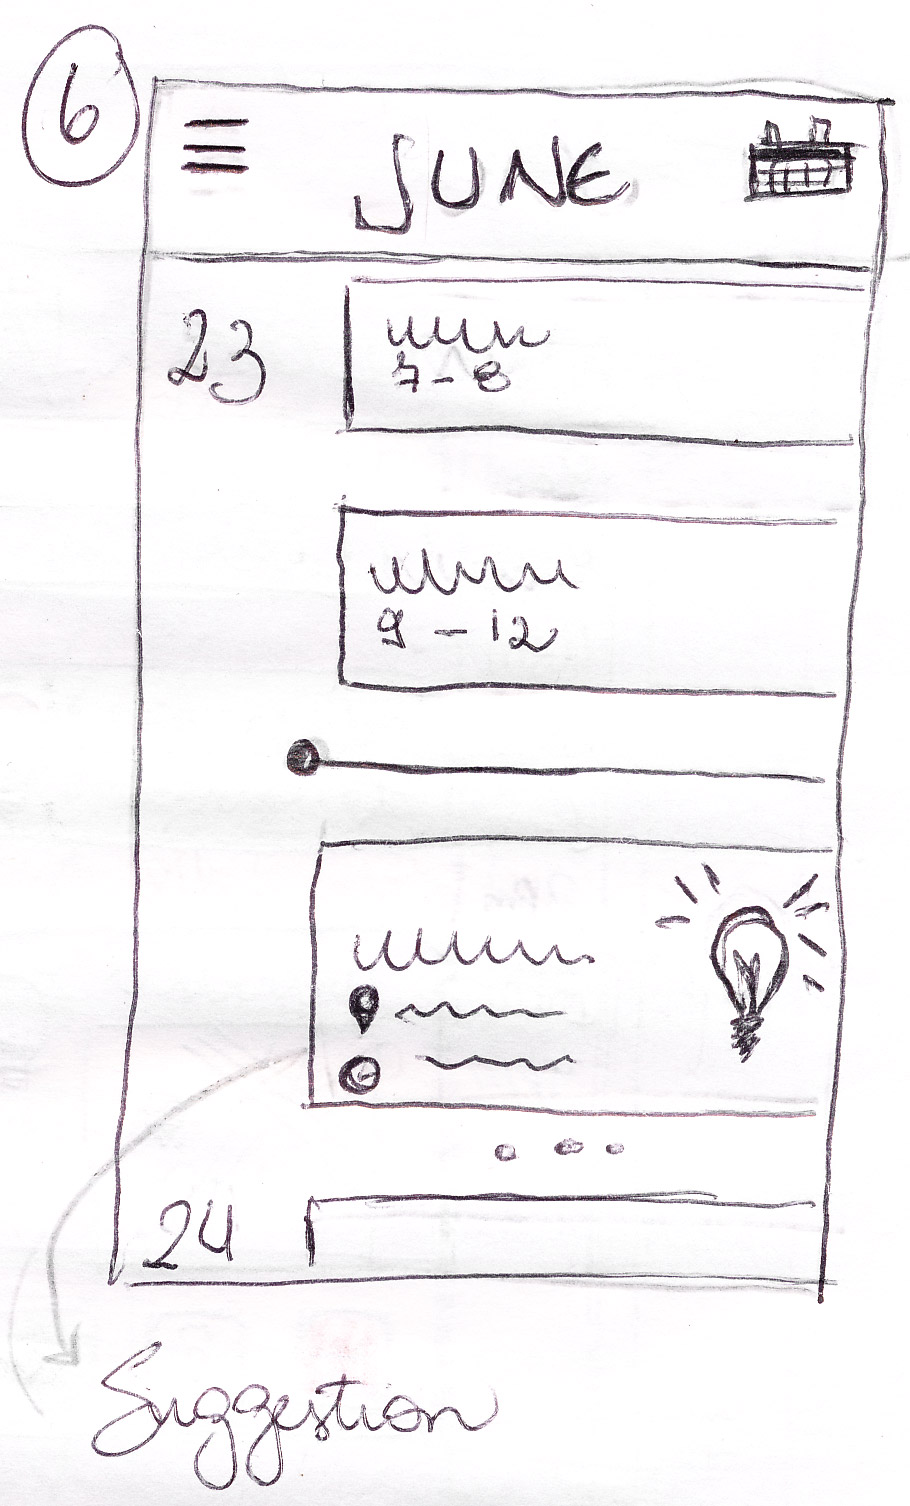 6
JUNE
23
7-8
9-12
24
Suggestion